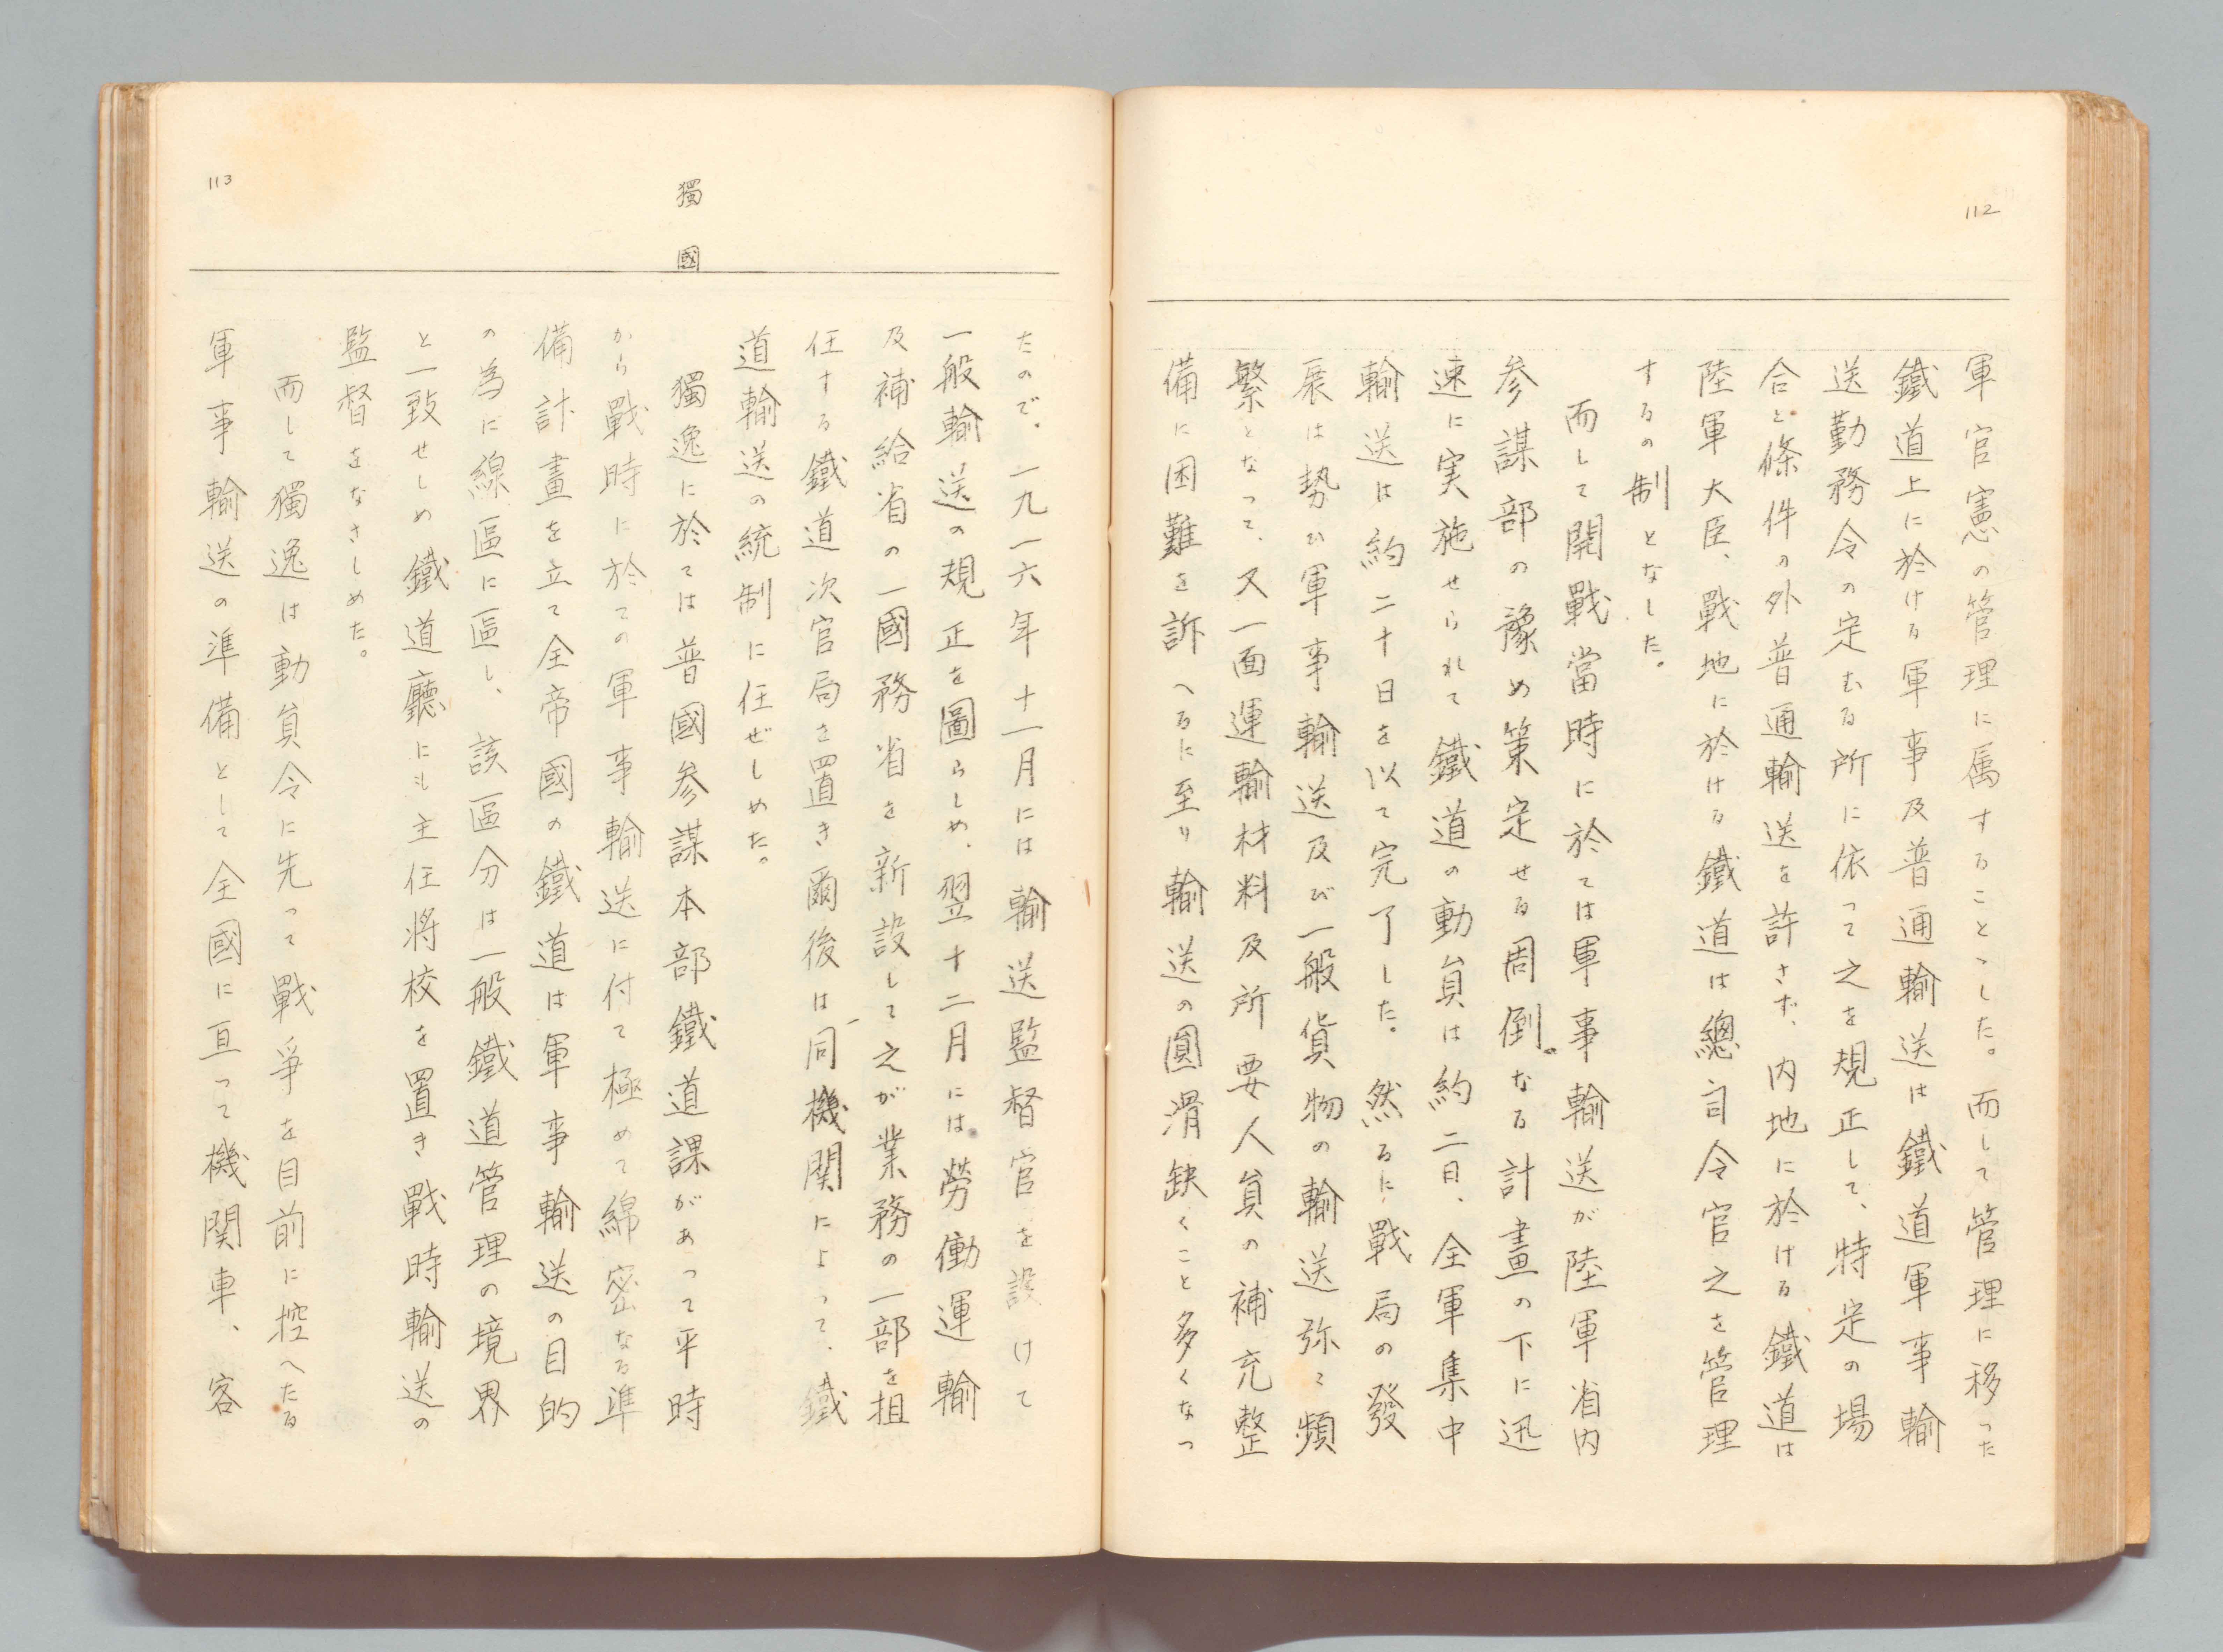 112
軍官憲の管理に属することゝした。而して管理に移った
鐵道上に於ける軍事及普通輸送は鐵道軍事輸
送勤務令の定むる所に依って之を規正して、特定の場
合と條件の外普通輸送を許さず、内地に於ける鐵道は
陸軍大臣、戰地に於ける鐵道は總司令官之を管理
するの制となした。
而して開戰當時に於ては軍事輸送が陸軍省内
参謀部の豫め策定せる周倒なる計畫の下に迅
速に実施せられて鐵道の動員は約二日、全軍集中
輸送は約二十日を以て完了した。然るに戰局の發
展は勢ひ軍事輸送及び一般貨物の輸送弥々頻
繁となって、又一面運輸材料及所要人員の補充整
備に困難を訴へるに至り輸送の圓滑缺くこと多くなっ
113
獨國
たので。一九一六年十一月には輸送監督官を設けて
一般輸送の規正を圖らしめ、翌十二月には勞働運輸
及補給省の一國務省を新設して之が業務の一部を担
任する鐵道次官局を置き爾後は同機関によって、鐵
道輸送の統制に任ぜしめた。
獨逸に於ては普國参謀本部鐵道課があって平時
から戰時に於ての軍事輸送に付て極めて綿密なる準
備計畫を立て全帝國の鐵道は軍事輸送の目的
の為に線區に區し、該區分は一般鐵道管理の境界
と一致せしめ鐵道廳にも主任将校を置き戰時輸送の
監督をなさしめた。
而して獨逸は動員令に先って戰爭を目前に控へたる
軍事輸送の準備として全國に亘って機関車、客